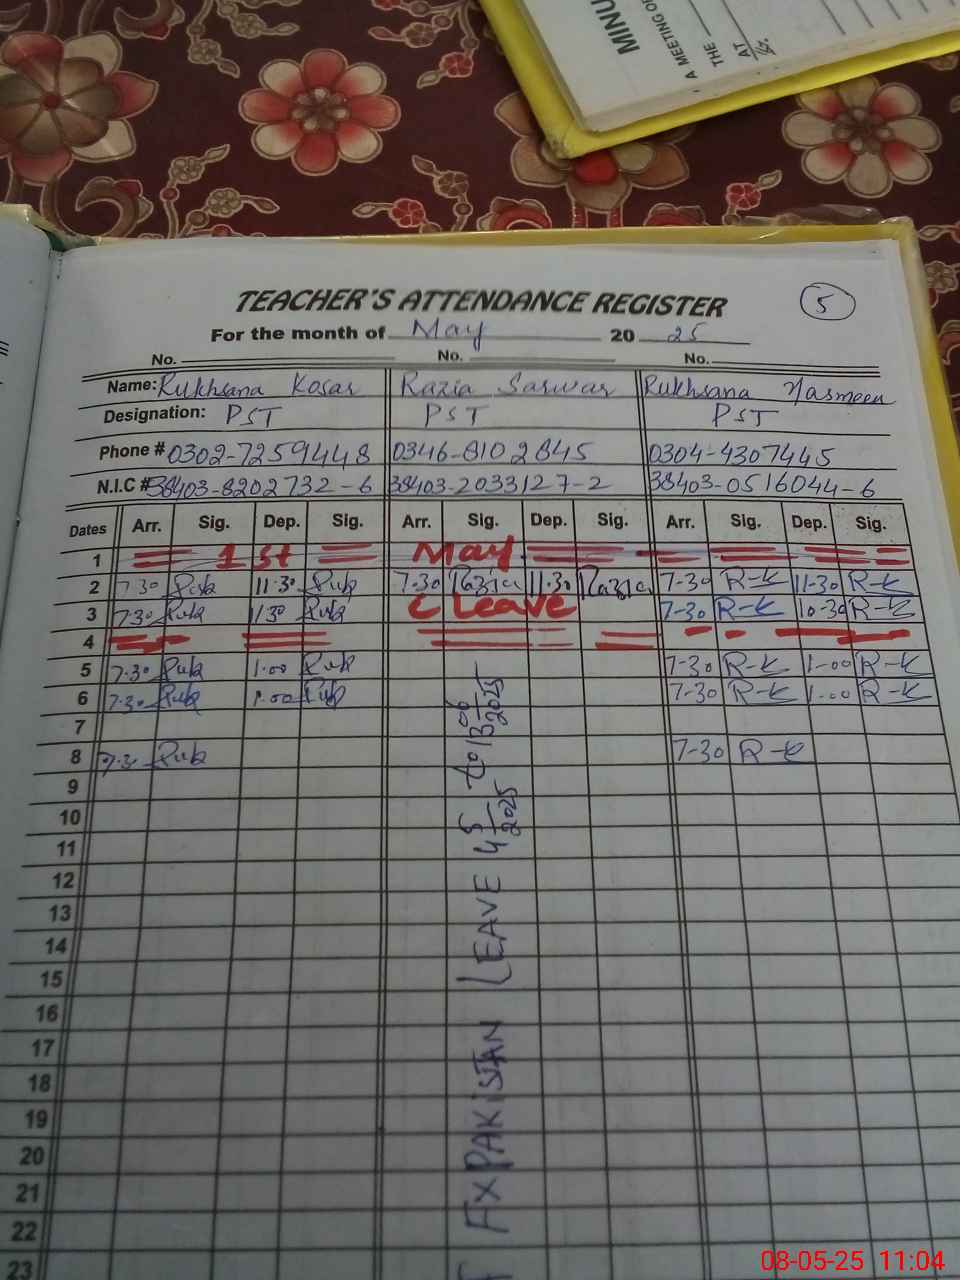 MINU
A MEETING OF
THE
AT
TEACHER'S ATTENDANCE REGISTER
5
For the month of May 2025
No. No. No.
Name: Rukhsana Kosar Razia Sarwar Rukhsana Yasmeen
Designation: PST PST PST
Phone # 0302-7259448 0346-8102845 0304-4307445
N.I.C # 38403-8202732-6 38403-2033127-2 38403-0516044-6
Dates Arr. Sig. Dep. Sig. Arr. Sig. Dep. Sig. Arr. Sig. Dep. Sig.
1 1st May
2 7.30 Ruk 11.30 Ruk 7-30 Razia 11.30 Razia 7-30 R-K 11-30 R-K
3 7.30 Ruk 11.30 Ruk C Leave 7-30 R-K 10-30 R-K
4
5 7.30 Ruk 1.00 Ruk 7-30 R-K 1-00 R-K
6 7.30 Ruk 1.00 Ruk 7-30 R-K 1-00 R-K
7
8 7.3 Ruk 7-30 R-K
9
10
11
12
13
14
15
16
17
18
19
20
21
22
23
EX PAKISTAN LEAVE 4/5/2025 to 13/06/2025
08-05-25 11:04